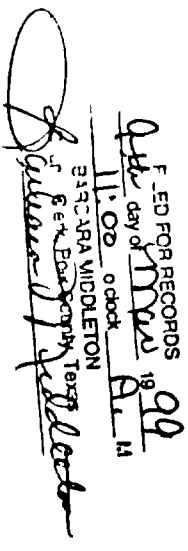 F_ED FOR RECORDS
9th day of Mar 19 99
11:00 o'clock A. M
BARBARA MIDDLETON
Clerk County Texas
Barbara Middleton